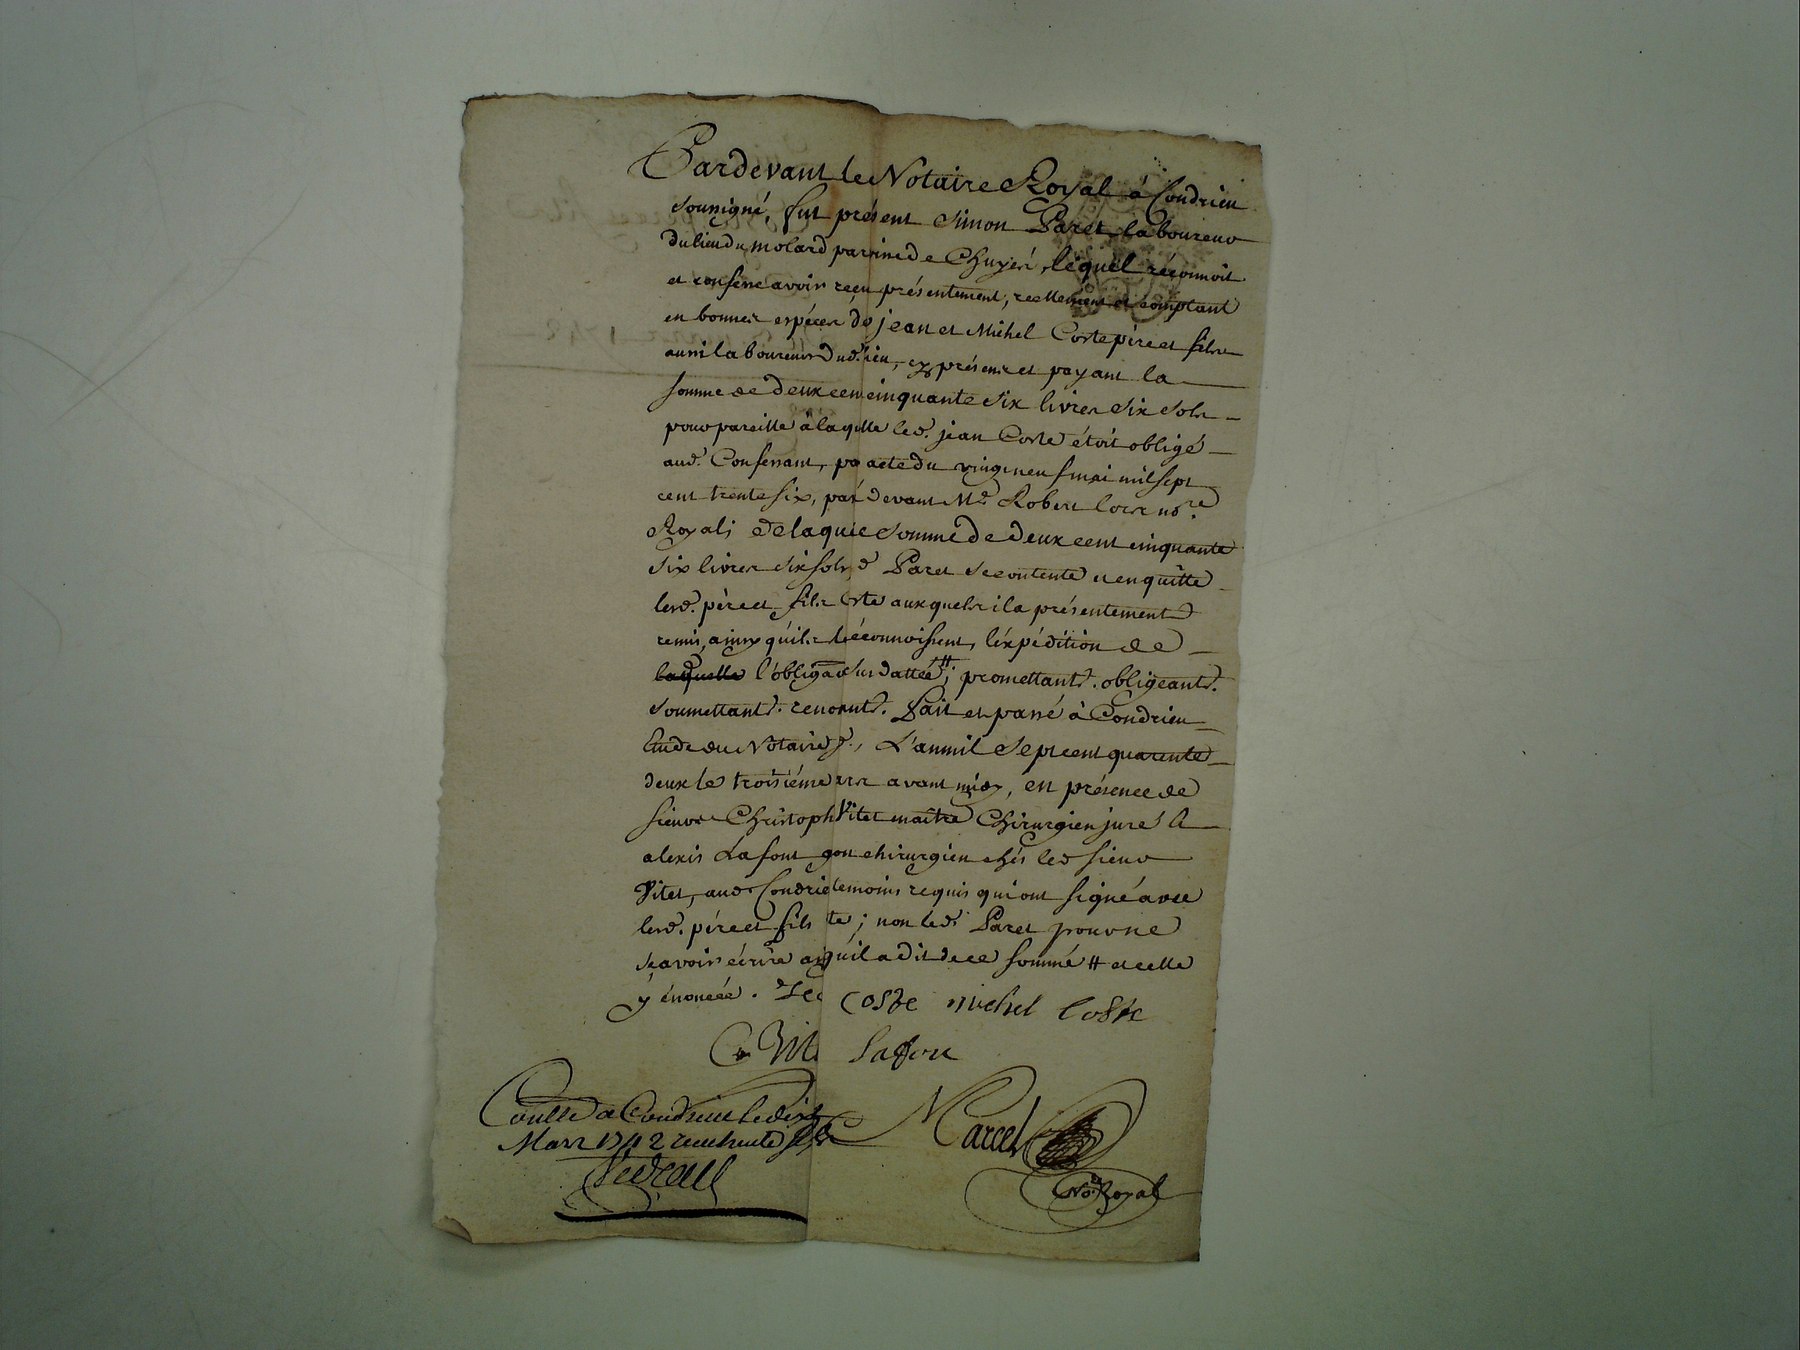 Pardevant le Notaire Royal à Condrieu
soussigné, fut présent Simon Paret laboureur
du lieu du molard parroisse de Chuyer, lequel réconnoit
et confesse avoir reçu présentement, reellement et comptant
en bonnes espéces de jean et Michel Coste pére et fils
aussi laboureurs dud. lieu, présens et payant la
somme de deux cent cinquante six livres six sols
pour pareille à laquelle led. jean Coste étoit obligé
aud. Confessant, par acte du vingt neuf mai mil sept
cent trente six, par devant Me. Robert nore.
Royal; de laquelle somme de deux cent cinquante
six livres six sols, d Paret se contente et en quitte
lesd. pére et fils Coste auxquels il a présentement
remis, ainsy qu'ils le réconnoissent, l'éxpédition de
laquelle l'obligaõn sus dattée #; promettant. obligeant.
soumettant. renonçant. Fait et passé à Condrieu
Etude du Notaire, L'an mil sept cent quarente
deux le troisiéme mars avant midy, en présence de
sieur Christophe Vitet maître Chirurgien juré &
alexis Lafont garçon chirurgien chés led sieur
Vitet, aud Condrieu temoins requis qui ont signé avec
lesd. pére et fils Coste; non led. Paret pour ne
sçavoir écrire ainsy qu'il a dit de ce sommé # et celle
y énoncée.
Coste michel Coste
Vitet Lafont
Conllé a Condrieu le dix
Mars 1742
Marcel
Nore Royal